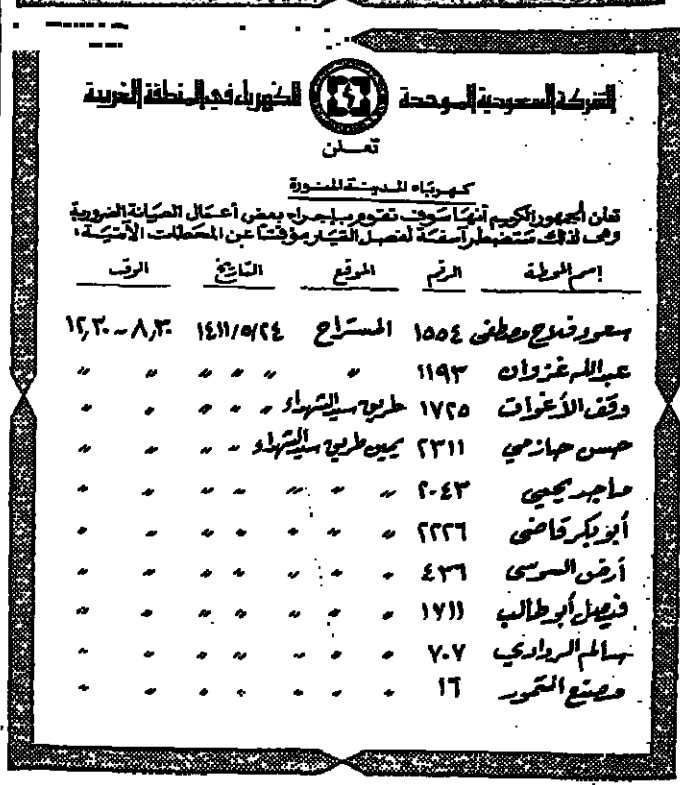 الشركة السعودية الموحدة للكهرباء في المنطقة الغربية
تعلن
كهرباء المدينة المنورة
تعلن للجمهور الكريم أنها سوف تقوم بإجراء بعض أعمال الصيانة الضرورية
وهي لذلك ستضطر آسفة لفصل التيار مؤقتا عن المحطات الآتية :
إسم المحطة الرقم الموقع التاريخ الوقت
سعود فلاح مصطفى ١٥٥٤ المستراح ١٤١١/٥/٢٤ ٨,٣٠ - ١٢,٣٠
عبدالله غزوان ١١٩٣ " " " " " "
وقف الأغوات ١٧٢٥ طريق سيد الشهداء " " " " "
حسن حازمي ٢٣١١ يمين طريق سيد الشهداء " " " "
ماجد يحيى ٢٠٤٣ " " " " " " "
أبو بكر قاضي ٢٢٢٦ " " " " " " "
أرض السوسى ٤٣٦ " " " " " " "
فيصل أبو طالب ١٧١١ " " " " " " "
سالم الروادي ٧٠٧ " " " " " " "
مصنع التمور ١٦ " " " " " " "